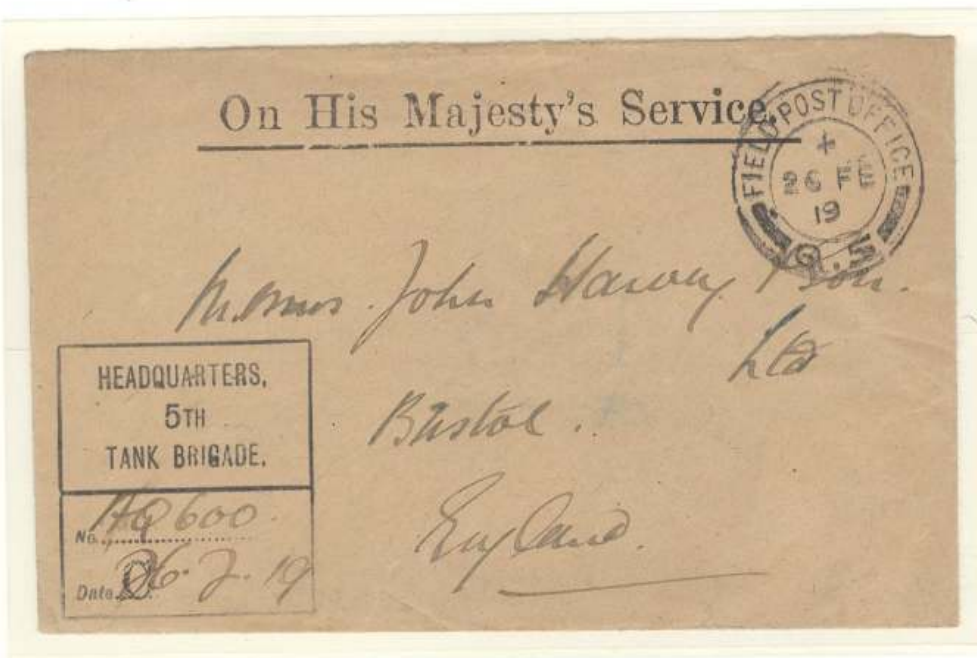 On His Majesty's Service.
FIELD POST OFFICE
+
26 FE
19
Messrs. John Harvey & Son.
Ltd
Bristol.
England.
HEADQUARTERS,
5TH
TANK BRIGADE.
No. 600
Date 26.2.19